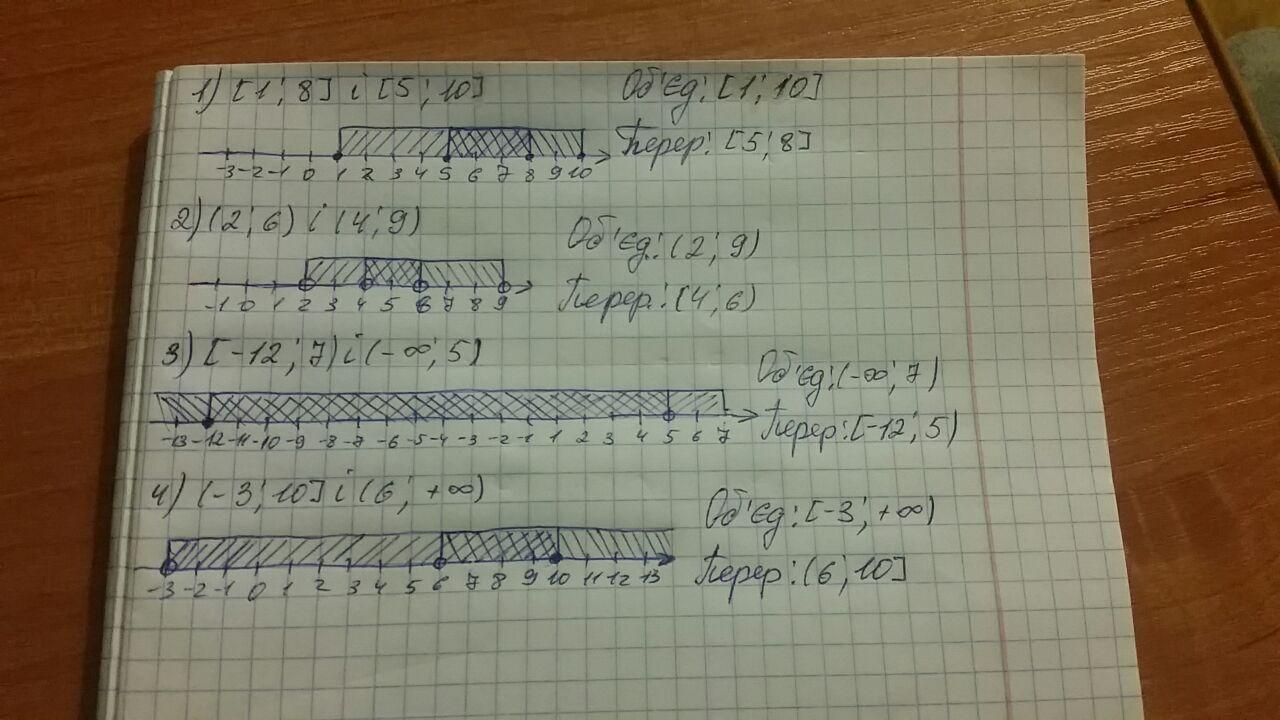 1) [1; 8] і [5; 10] Об'єд: [1; 10]
Перер: [5; 8]
-3 -2 -1 0 1 2 3 4 5 6 7 8 9 10
2) (2; 6) і (4; 9) Об'єд: (2; 9)
-1 0 1 2 3 4 5 6 7 8 9 Перер: (4; 6)
3) [-12; 7) і (-∞; 5) Об'єд: (-∞; 7)
-13 -12 -11 -10 -9 -8 -7 -6 -5 -4 -3 -2 -1 1 2 3 4 5 6 7 Перер: [-12; 5)
4) (-3; 10] і (6; +∞) Об'єд: [-3; +∞)
-3 -2 -1 0 1 2 3 4 5 6 7 8 9 10 11 12 13 Перер: (6; 10]